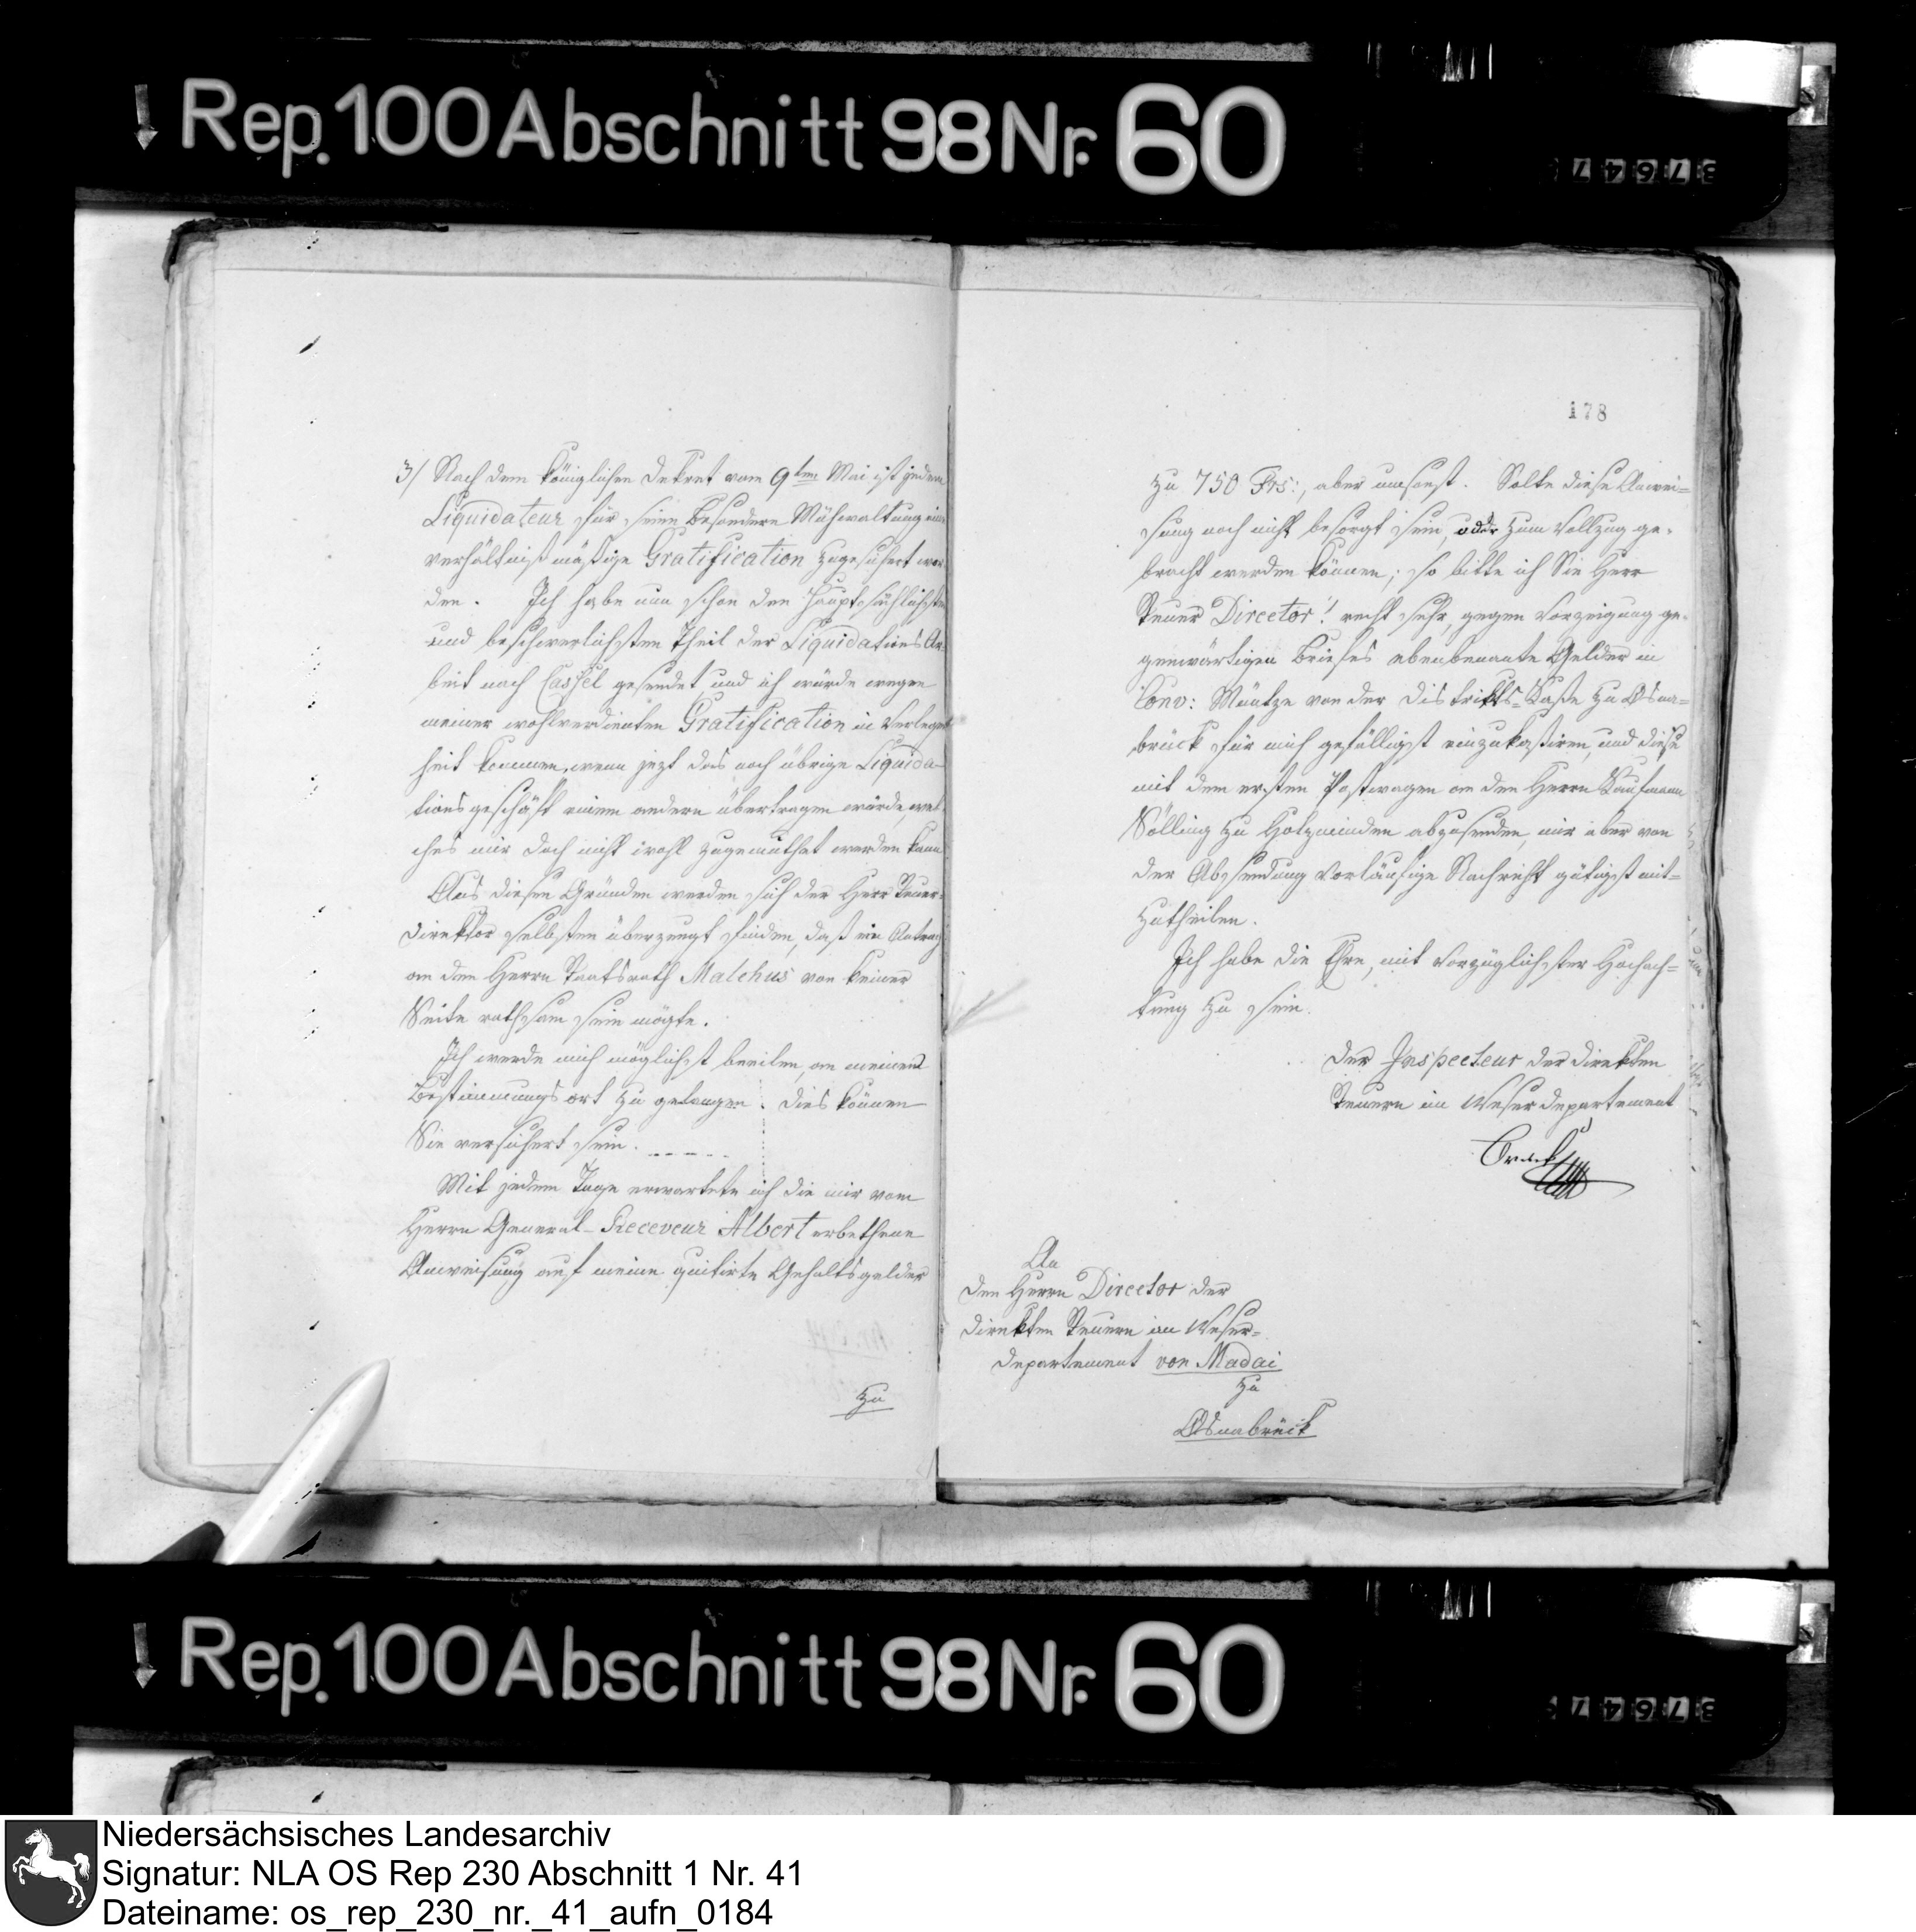 Rep. 100 Abschnitt 98 Nr. 60
37647
3/ Nach dem Königlichen Dekret vom 9ten Mai ist jedem
Liquidateur für seine besondere Mühewaltung eine
verhältnißmäßige Gratification zugesichert wor-
den. Ich habe nun schon den hauptsächlichsten
und beschwerlichsten Theil der Liquidations Ar-
beit nach Cassel gesendet und ich würde wegen
meiner wohlverdienten Gratification in Verlegen-
heit kommen, wenn jezt das noch übrige Liquida-
tionsgeschäft einem andern übertragen würde, wel-
ches mir doch nicht wohl zugemuthet werden kann
Aus diesen Gründen werden sich der Herr Steuer-
direktor selbsten überzeugt finden, daß ein Antrag
an den Herrn Staatsrath Malchus von keiner
Seite rathsam sein mögte.
Ich werde mich möglichst beeilen, an meinen
Bestimmungsort zu gelangen. Dies können
Sie versichert sein.
Mit jedem Tage erwartete ich die mir vom
Herrn General-Receveur Albert erbethene
Anweisung auf meine quitirte Gehaltsgelder
zu
178
zu 750 Frs:, aber umsonst. Solte diese Anwei=
sung noch nicht besorgt sein, oder zum Vollzug ge-
bracht werden können; so bitte ich Sie Herr
Steuer Director! recht sehr, gegen Vorzeigung ge-
genwärtigen Briefes ebenbenannte Gelder in
Conv: Müntze von der Distrikts=Kaße zu Osna=
brück für mich gefälligst einzukaßiren, und diese
mit dem ersten Postwagen an den Herrn Kaufmann
Sölling zu Holzminden abzusenden, mir aber von
der Absendung vorläufige Nachricht gütigst mit=
zutheilen.
Ich habe die Ehre, mit vorzüglichster Hochach=
tung zu sein.
Der Inspecteur der direkten
Steuern im Weserdepartement
An
den Herrn Director der
direkten Steuern im Weser=
departement von Madai
zu
Osnabrück
Rep. 100 Abschnitt 98 Nr. 60
37647
Niedersächsisches Landesarchiv
Signatur: NLA OS Rep 230 Abschnitt 1 Nr. 41
Dateiname: os_rep_230_nr._41_aufn_0184